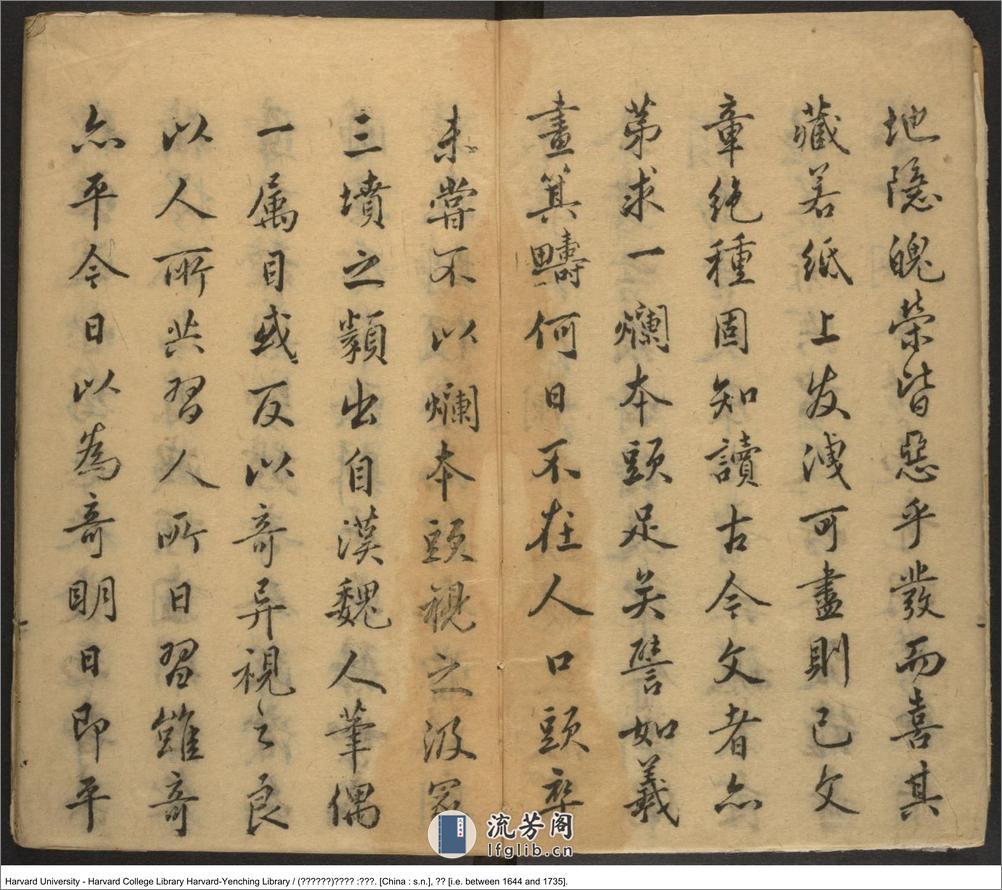 地隱魄榮皆惡乎發而喜其
藏若紙上发洩可盡則已文
章絶種固知讀古今文者亦
苐求一爛本頭足矣譬如羲
畫箕疇何日不在人口頭卒
未嘗不以爛本頭視之汲冢
三墳之類出自漢魏人筆偶
一属目或反以竒异視之良
以人所共習人所日習雖竒
亦平今日以為竒明日即平
流芳阁
lfglib.com
Harvard University - Harvard College Library Harvard-Yenching Library / (??????)???? :???. [China : s.n.], ?? [i.e. between 1644 and 1735].